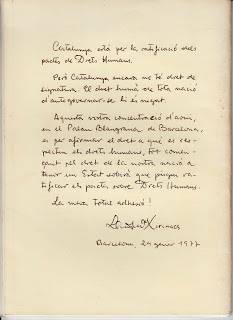 Catalunya està per la ratificació dels
pactes de Drets Humans.
Però Catalunya encara no té dret de
signatura. El dret humà de tota nació
d'autogovernar-se li és negat.
Aquesta nostra concentració d'avui,
en el Palau Blaugrana de Barcelona,
és per afirmar el dret a què es res-
pectin els drets humans, tot comen-
çant pel dret de la nostra nació a
tenir un Estat sobirà que pugui ra-
tificar els pactes sobre Drets Humans.
La meva total adhesió!
Lluís Mª Xirinacs
Barcelona, 24 gener 1977